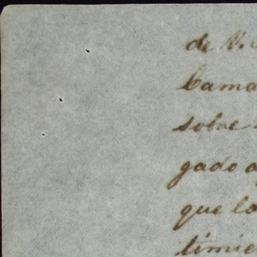 de V.
Cama
sobre
gado a
que la
timie